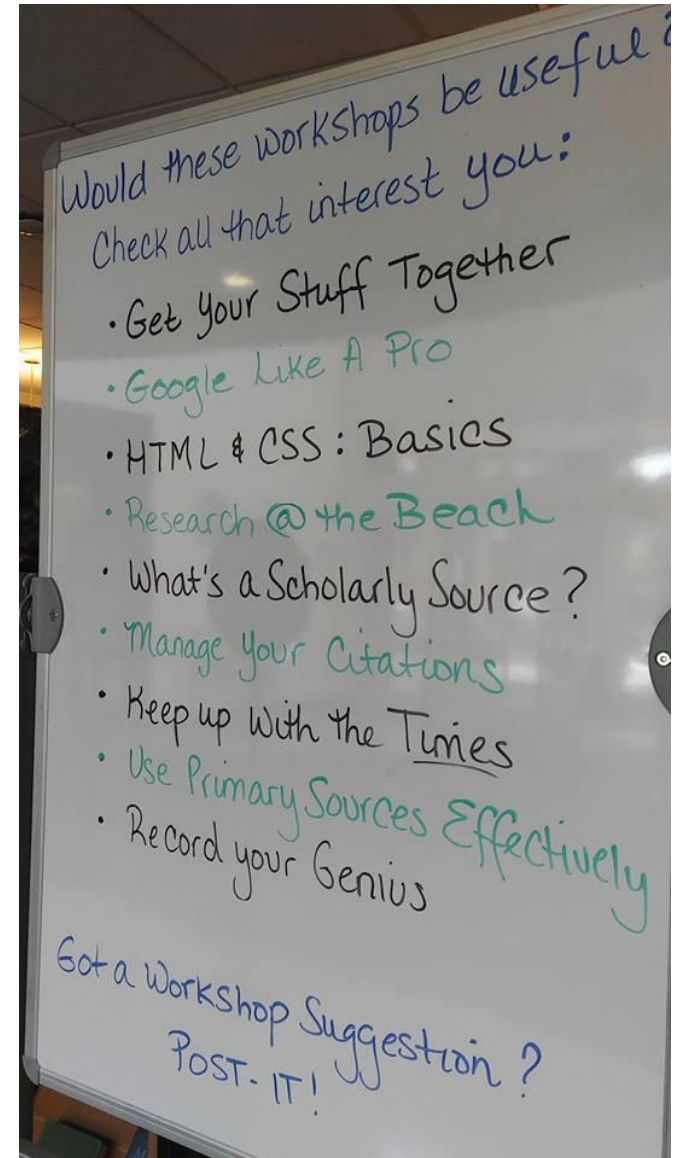 Would these workshops be useful?
Check all that interest you:
• Get Your Stuff Together
• Google Like A Pro
• HTML & CSS: Basics
• Research @ the Beach
• What's a Scholarly Source?
• Manage Your Citations
• Keep up with the Times
• Use Primary Sources Effectively
• Record your Genius
Got a Workshop Suggestion?
POST-IT!